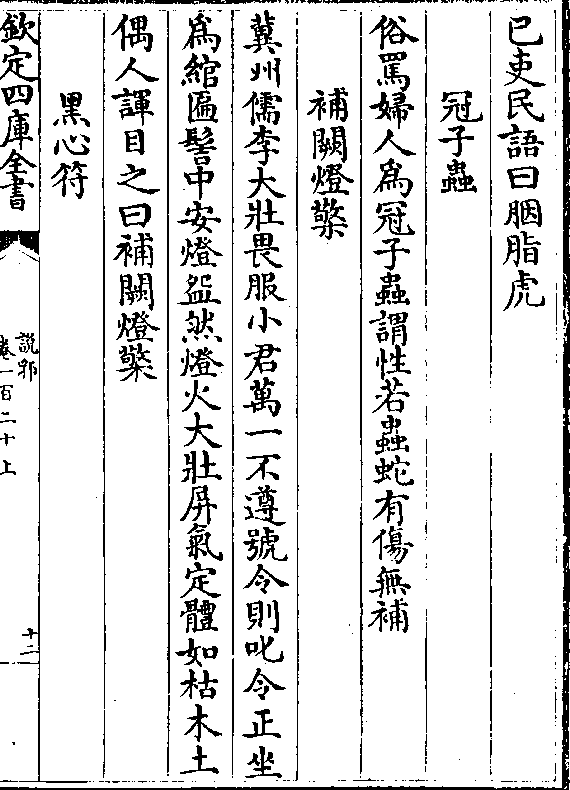 已吏民語曰胭脂虎
冠子蟲
俗罵婦人為冠子蟲謂性若蟲蛇有傷無補
補闕燈檠
冀州儒李大壯畏服小君萬一不遵號令則叱令正坐
為綰匾髻中安燈盌然燈火大壯屏氣定體如枯木土
偶人諢目之曰補闕燈檠
黑心符
欽定四庫全書
說郛
卷一百二十上
十二